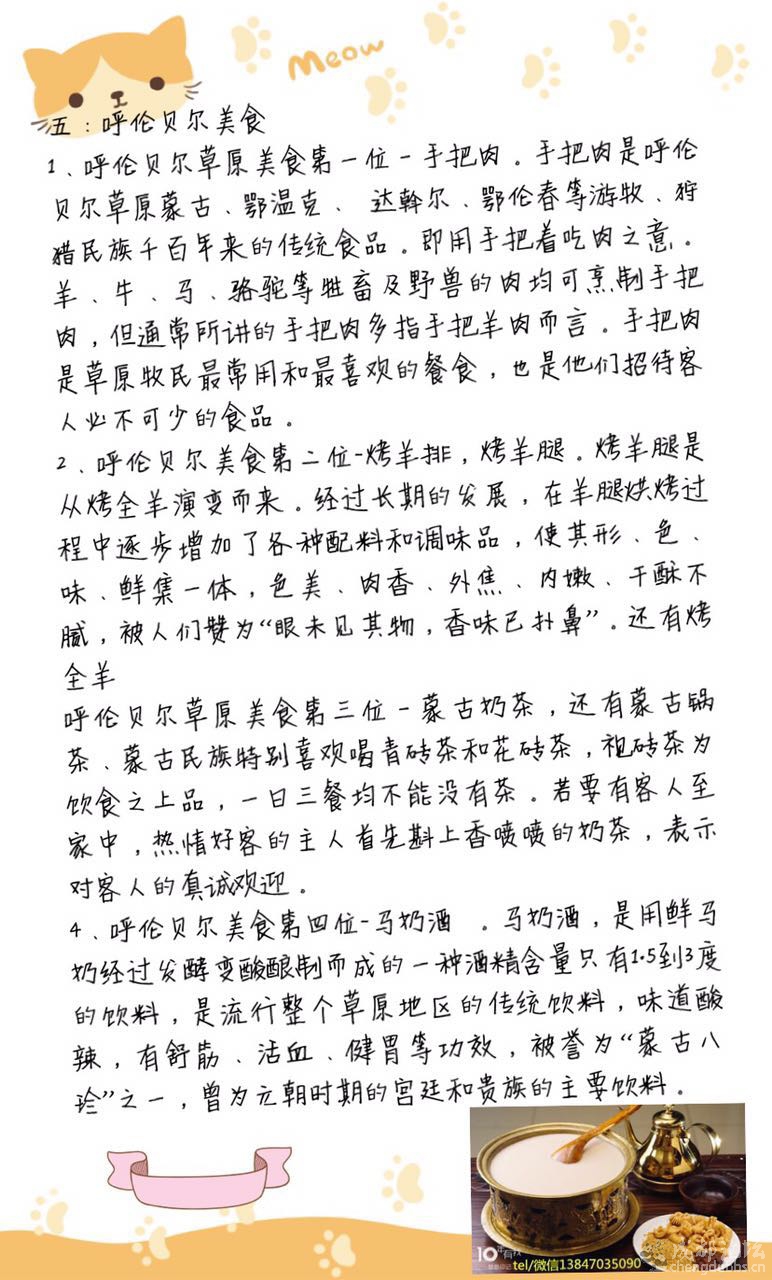 Meow
五：呼伦贝尔美食
1、呼伦贝尔草原美食第一位-手把肉。手把肉是呼伦
贝尔草原蒙古、鄂温克、 达斡尔、鄂伦春等游牧、狩
猎民族千百年来的传统食品。即用手把着吃肉之意。
羊、牛、马、骆驼等牲畜及野兽的肉均可烹制手把
肉，但通常所讲的手把肉多指手把羊肉而言。手把肉
是草原牧民最常用和最喜欢的餐食，也是他们招待客
人必不可少的食品。
2、呼伦贝尔美食第二位-烤羊排，烤羊腿。烤羊腿是
从烤全羊演变而来。经过长期的发展，在羊腿烘烤过
程中逐步增加了各种配料和调味品，使其形、色、
味、鲜集一体，色美、肉香、外焦、内嫩、干酥不
腻，被人们赞为“眼未见其物，香味已扑鼻”。还有烤
全羊
呼伦贝尔草原美食第三位-蒙古奶茶，还有蒙古锅
茶、蒙古民族特别喜欢喝青砖茶和花砖茶，视砖茶为
饮食之上品，一日三餐均不能没有茶。若要有客人至
家中，热情好客的主人首先斟上香喷喷的奶茶，表示
对客人的真诚欢迎。
4、呼伦贝尔美食第四位-马奶酒 。马奶酒，是用鲜马
奶经过发酵变酸酿制而成的一种酒精含量只有1.5到3度
的饮料，是流行整个草原地区的传统饮料，味道酸
辣，有舒筋、活血、健胃等功效，被誉为“蒙古八
珍”之一，曾为元朝时期的宫廷和贵族的主要饮料。
tel/微信13847035090
chengdubbs.cn